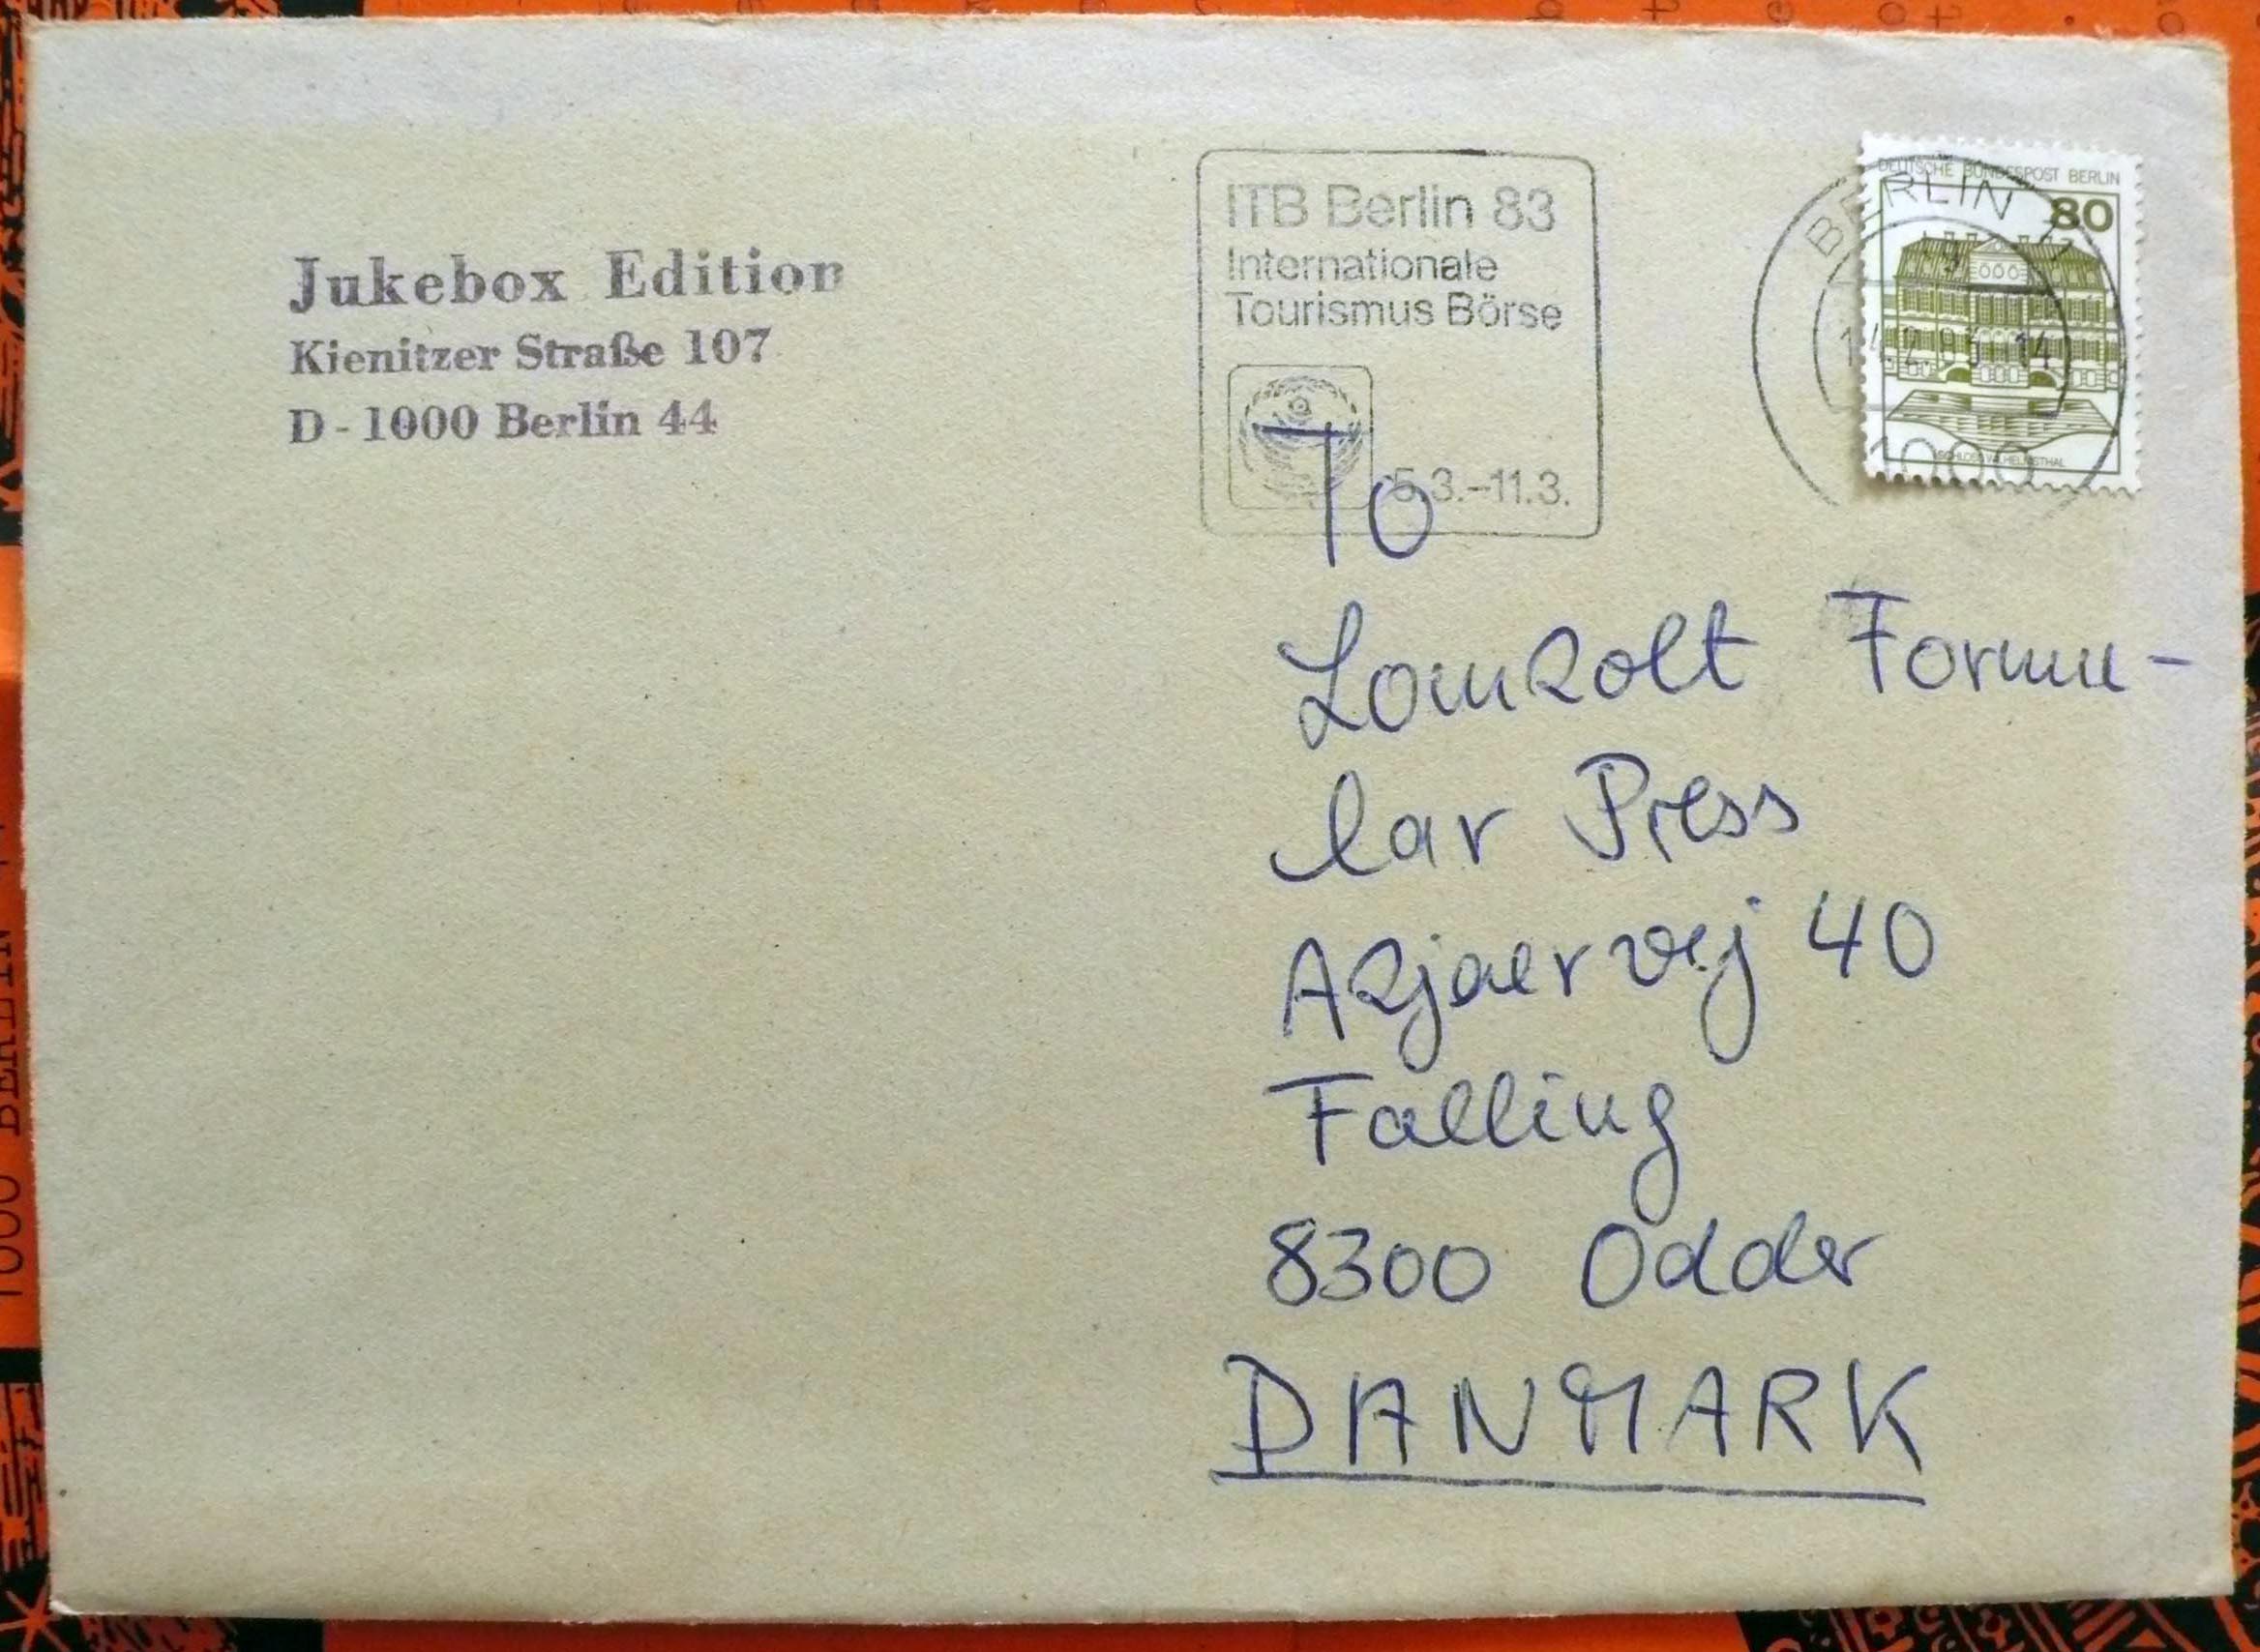 Jukebox Edition
Kienitzer Straße 107
D - 1000 Berlin 44
ITB Berlin 83
Internationale
Tourismus Börse
5.3.–11.3.
DEUTSCHE BUNDESPOST BERLIN
80
SCHLOSS WILHELMSTHAL
BERLIN
1000
To
Lomholt Formu-
lar Press
Ahjaervej 40
Falling
8300 Odder
DANMARK
1000 BERLIN